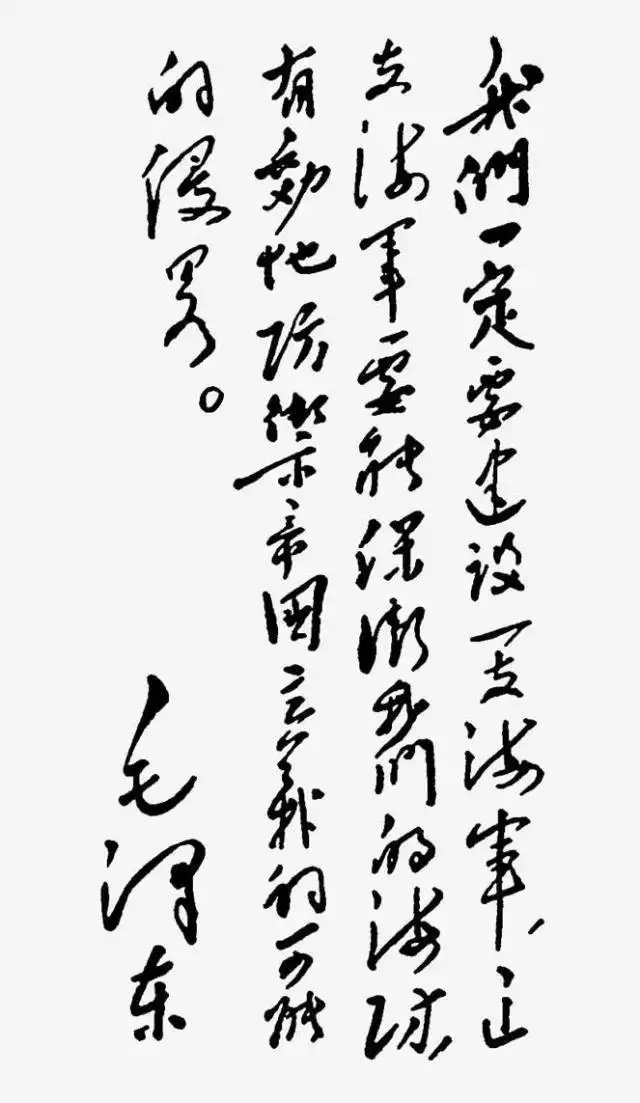 我們一定要建设一支海軍,这
支海軍要能保衛我們的海防,
有効地防禦帝國主義的可能
的侵畧。
毛泽东